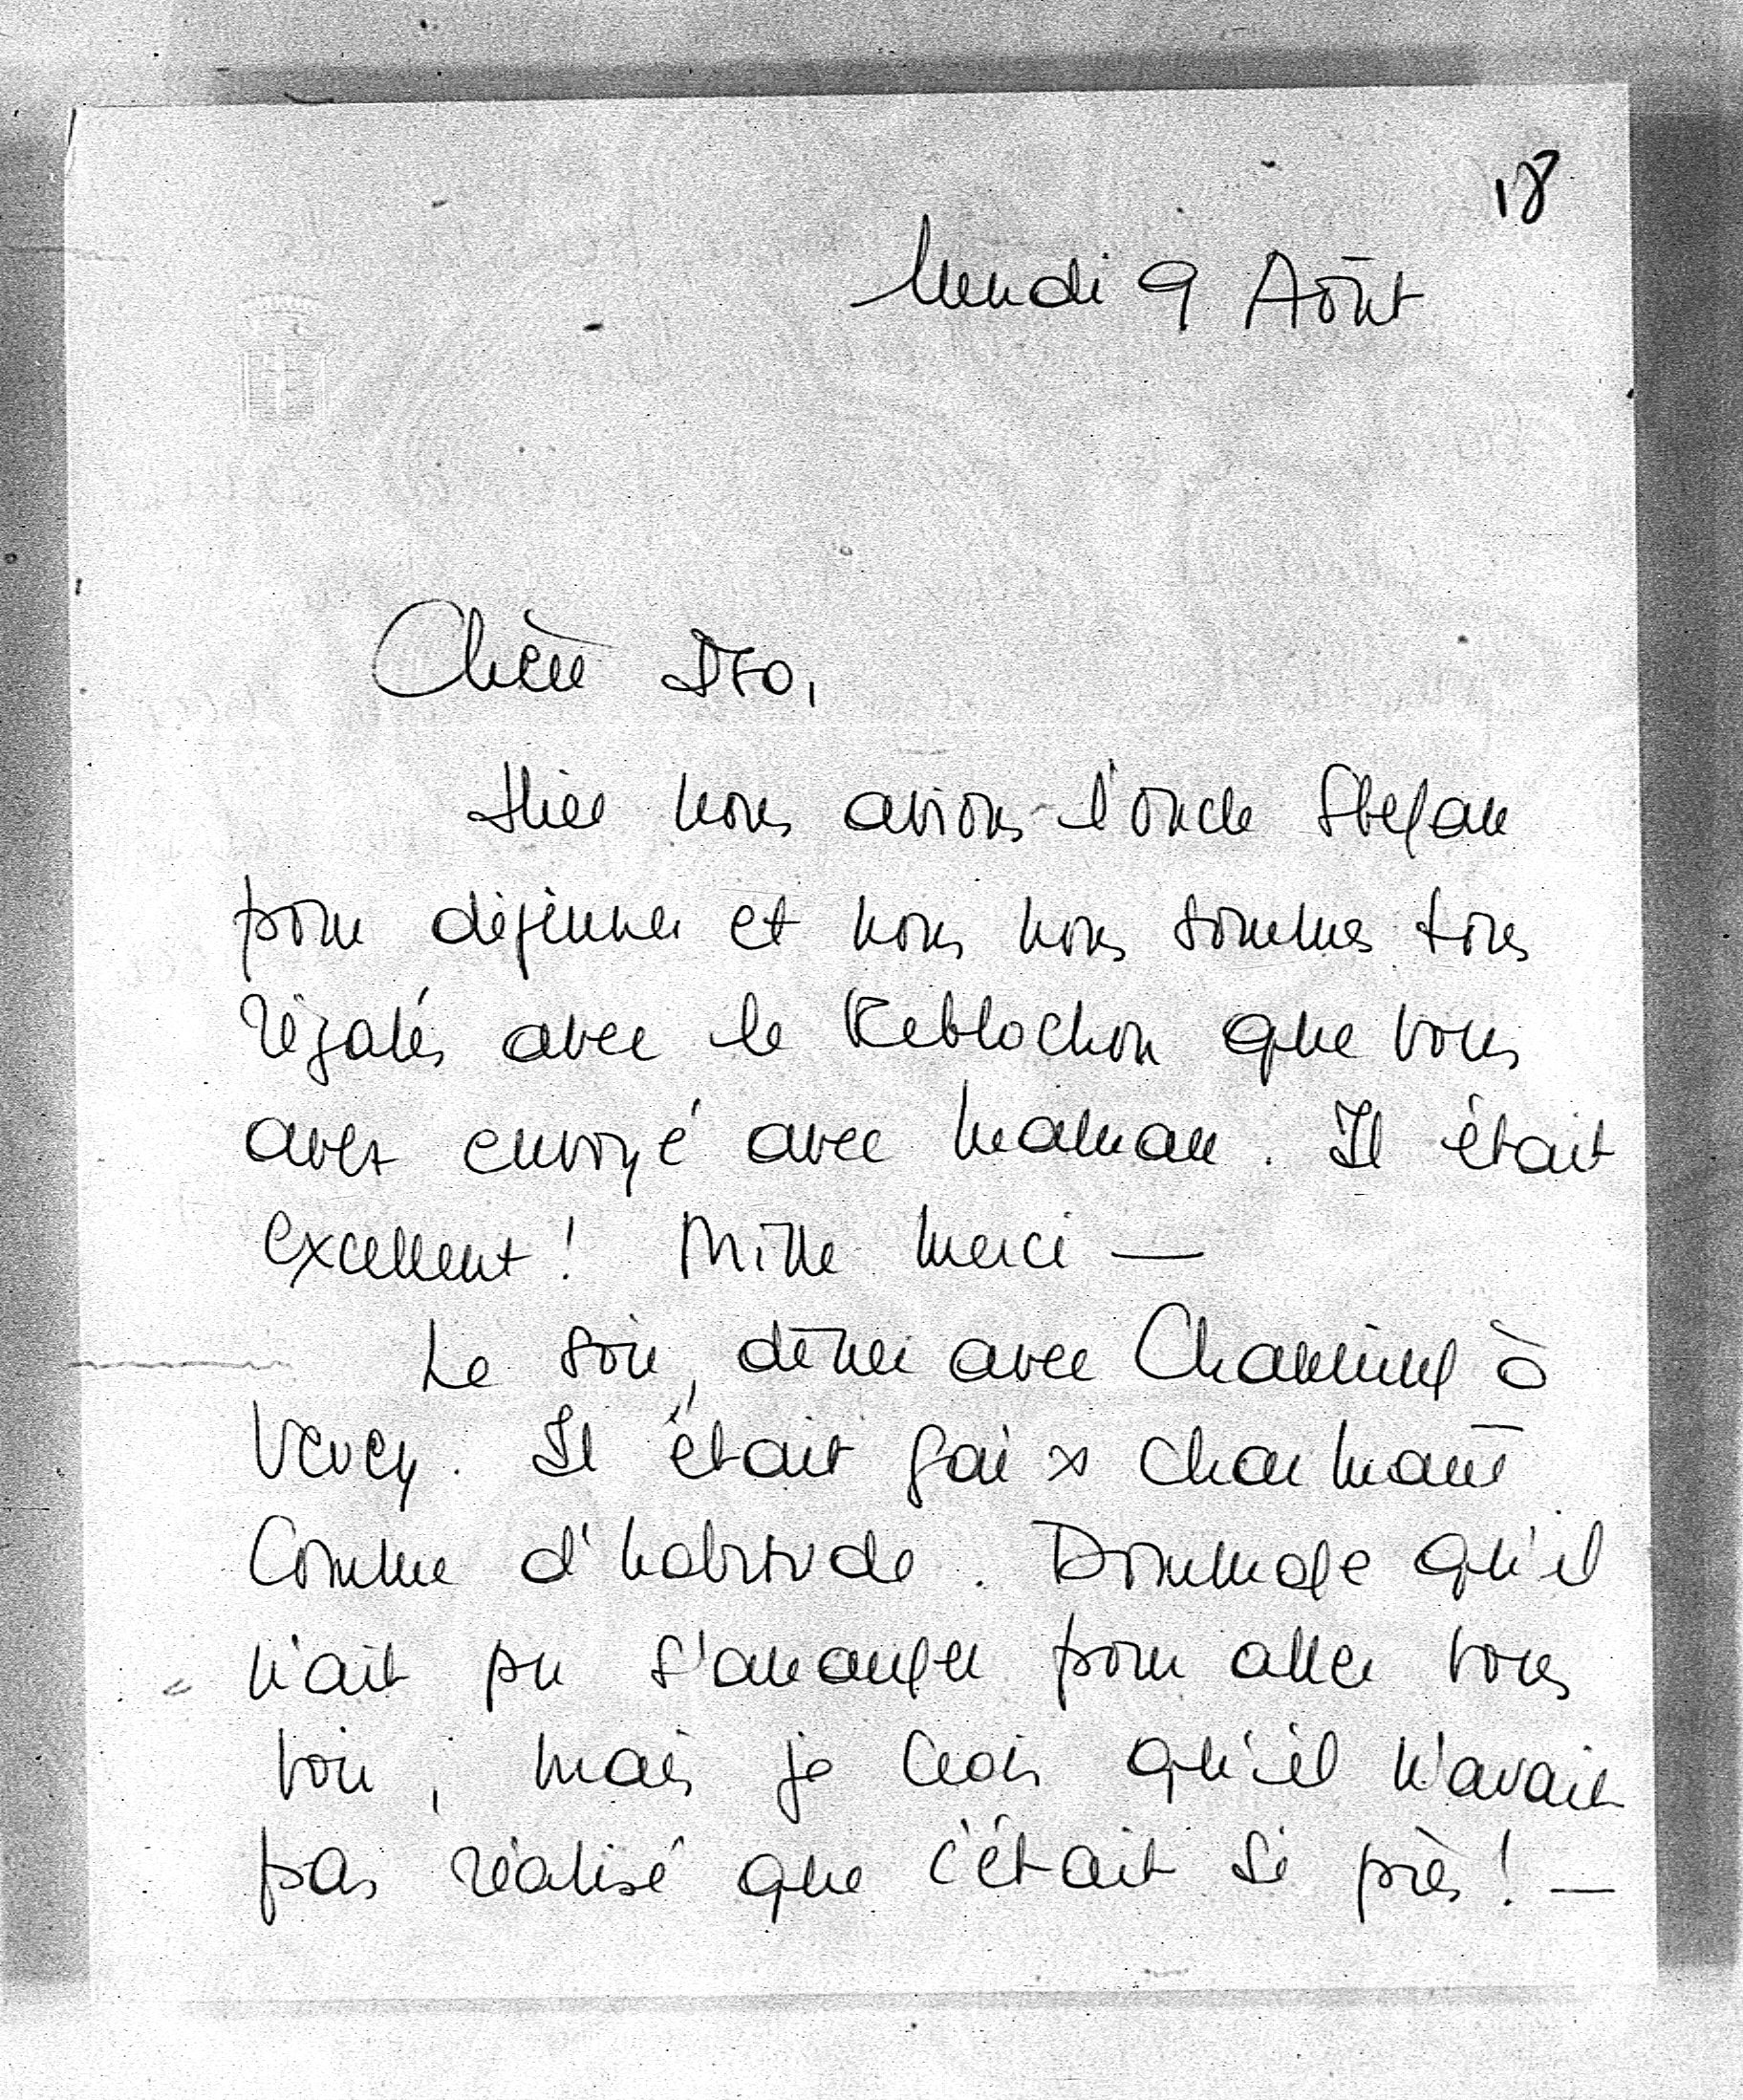 18
Lundi 9 Août
Chère Izo,
Hier nous avions l'oncle Stefan
pour déjeuner et nous nous sommes tous
régalés avec le Reblochon que vous
avez envoyé avec maman. Il était
excellent! Mille merci —
Le soir, dîner avec à
Vevey. Il était gai & charmant
comme d'habitude. Dommage qu'il
n'ait pu s'arranger pour aller vous
voir, mais je crois qu'il n'avait
pas réalisé que c'était si près! —